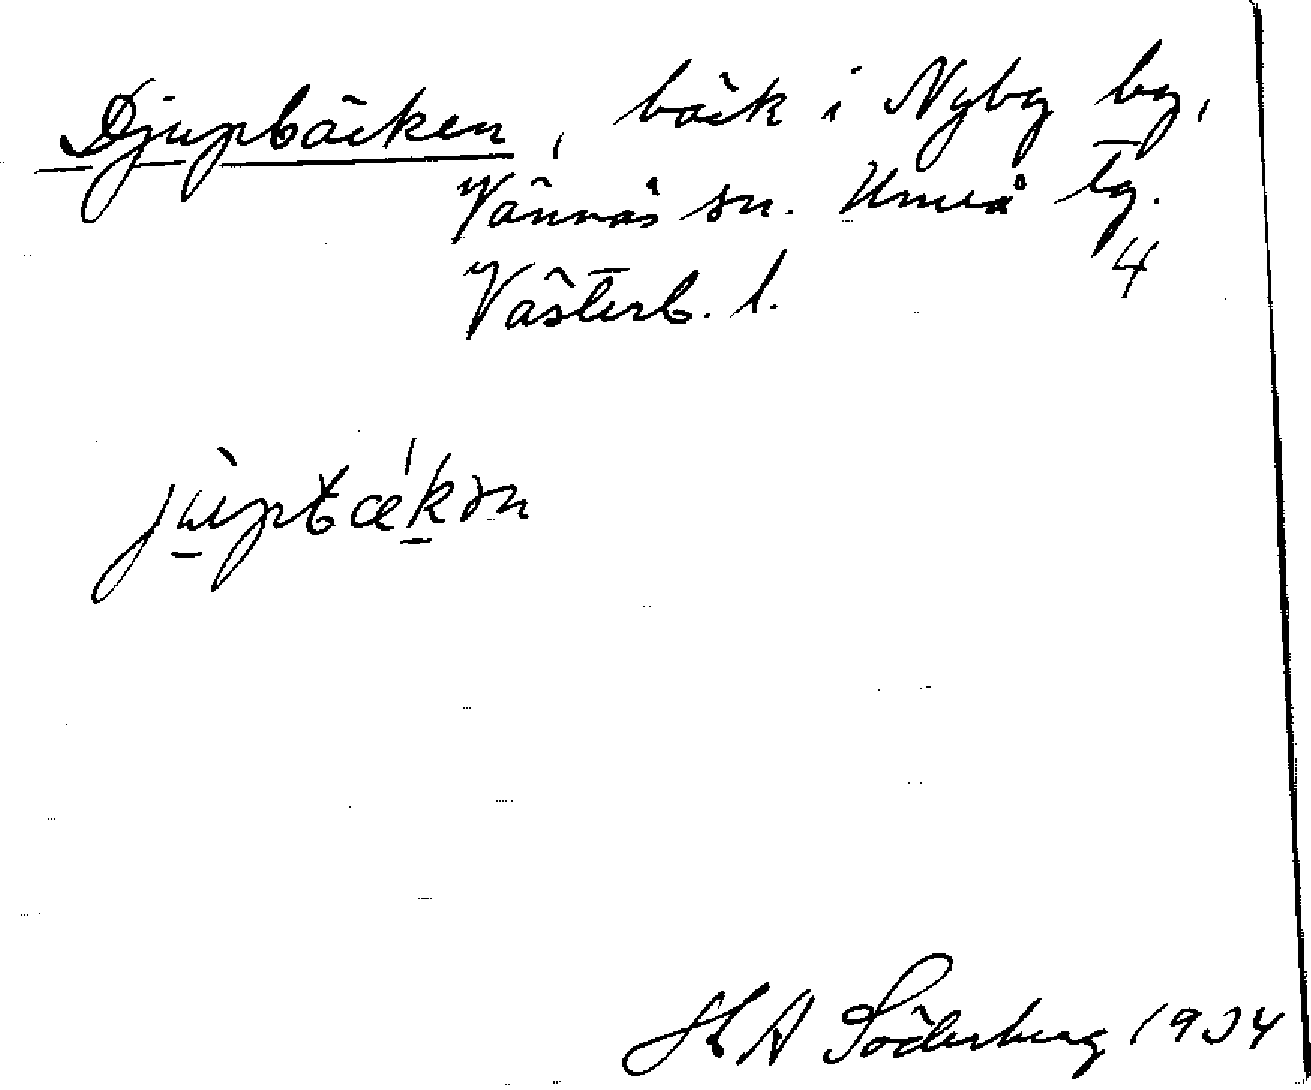 Djupbäcken, bäck i Nyby by,
Vännäs sn. Umeå tg.
4
Västerb. l.
jùpbǽkən
H A Söderberg 1934